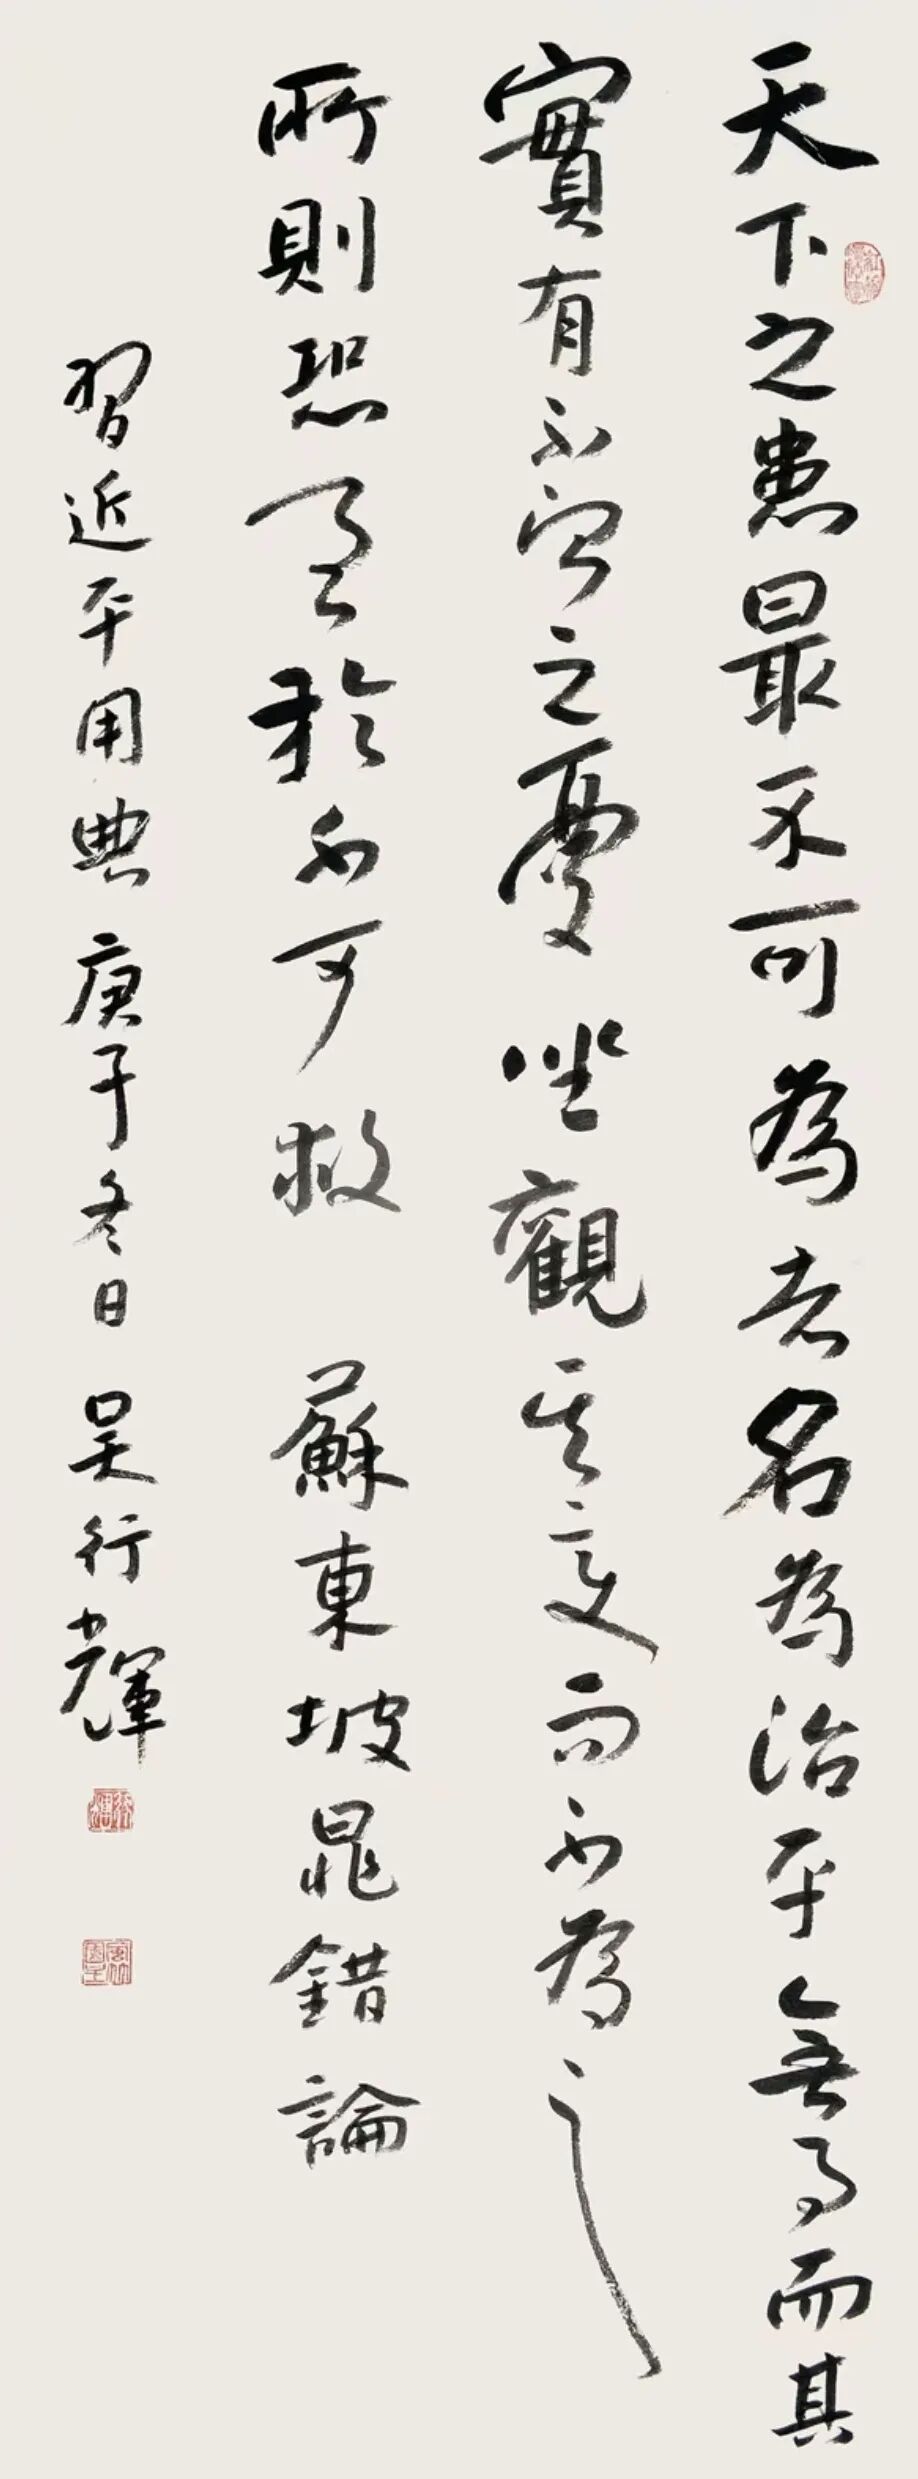 天下之患最不可為者名為治平無事而其
實有不測之憂坐觀其變而不為之
所則恐至於不可救 蘇東坡晁錯論
習近平用典 庚子冬日 吳行輝